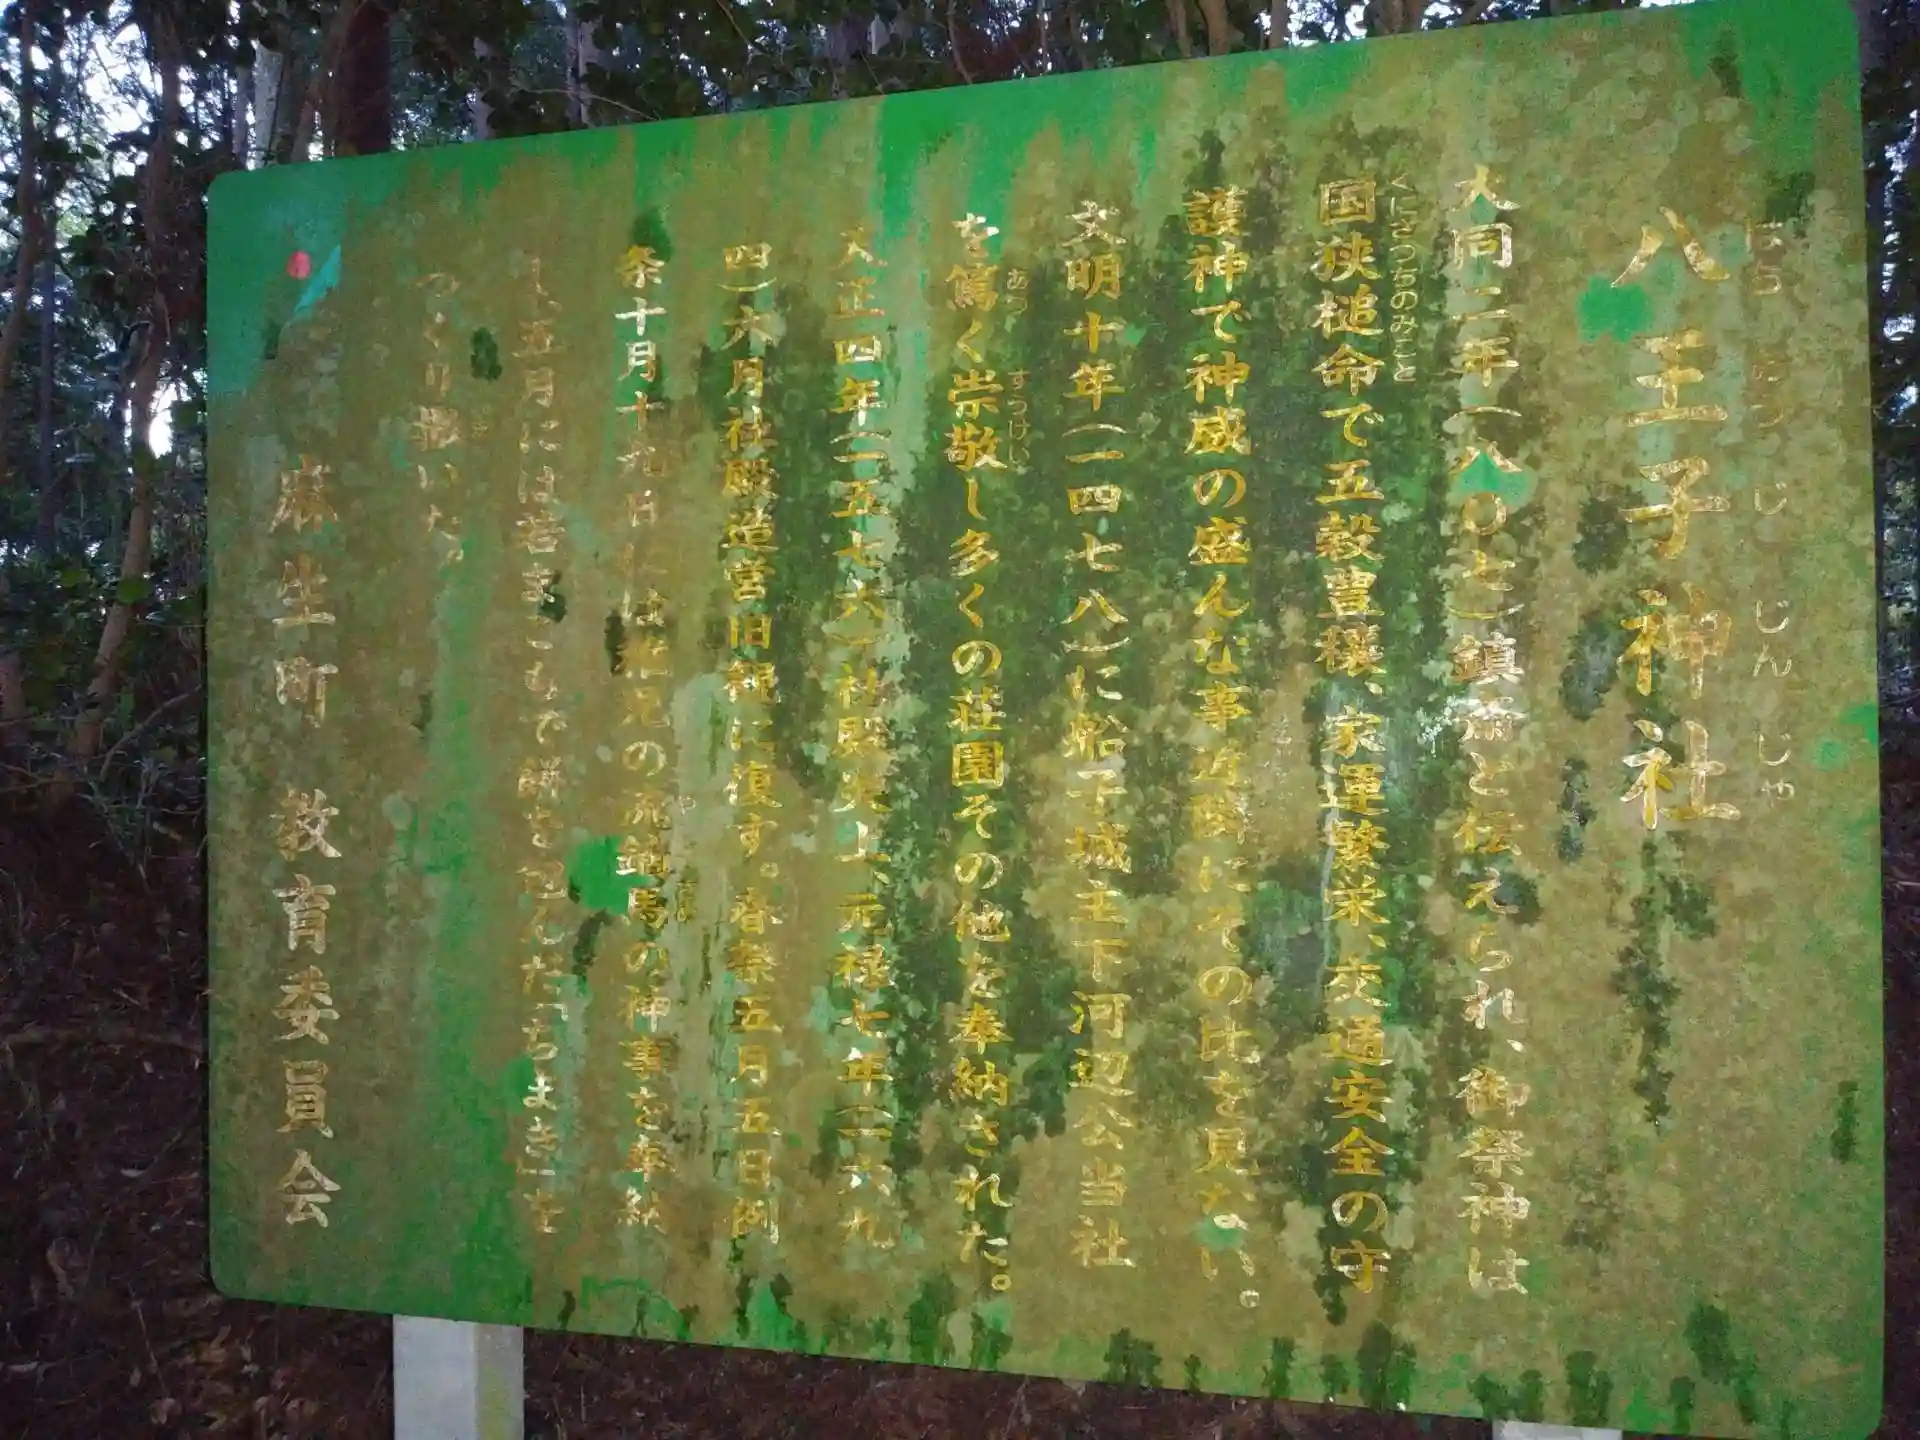 八王子神社
大同二年(八〇七)鎮斎と伝えられ、御祭神は
国狭槌命で五穀豊穣、家運繁栄、交通安全の守
くにさつちのみこと
護神で神威の盛んな事近隣にその比を見ない。
文明十年(一四七八)に船子城主下河辺公当社
を篤く崇敬し多くの荘園その他を奉納された。
あつ すうけい
天正四年(一五七六)社殿炎上、元禄七年(一六九
四)六月社殿造営旧観に復す。春祭五月五日例
祭十月十九日には の流鏑馬の神事を奉納
し、五月には若まこもで餅を包んだ「ちまき」を
つくり賑いた。
麻生町 教育委員会